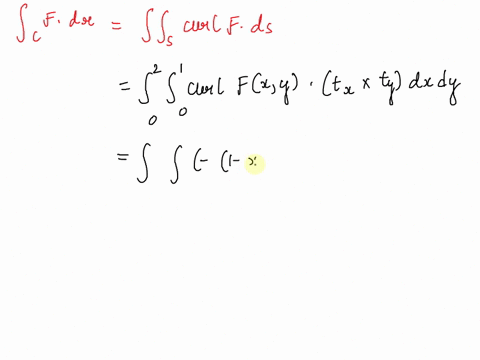 ∫_C F. dr = ∫∫_S curl F. ds
= ∫_0^2 ∫_0^1 curl F(x,y) · (t_x × t_y) dx dy
= ∫ ∫ (- (1- x